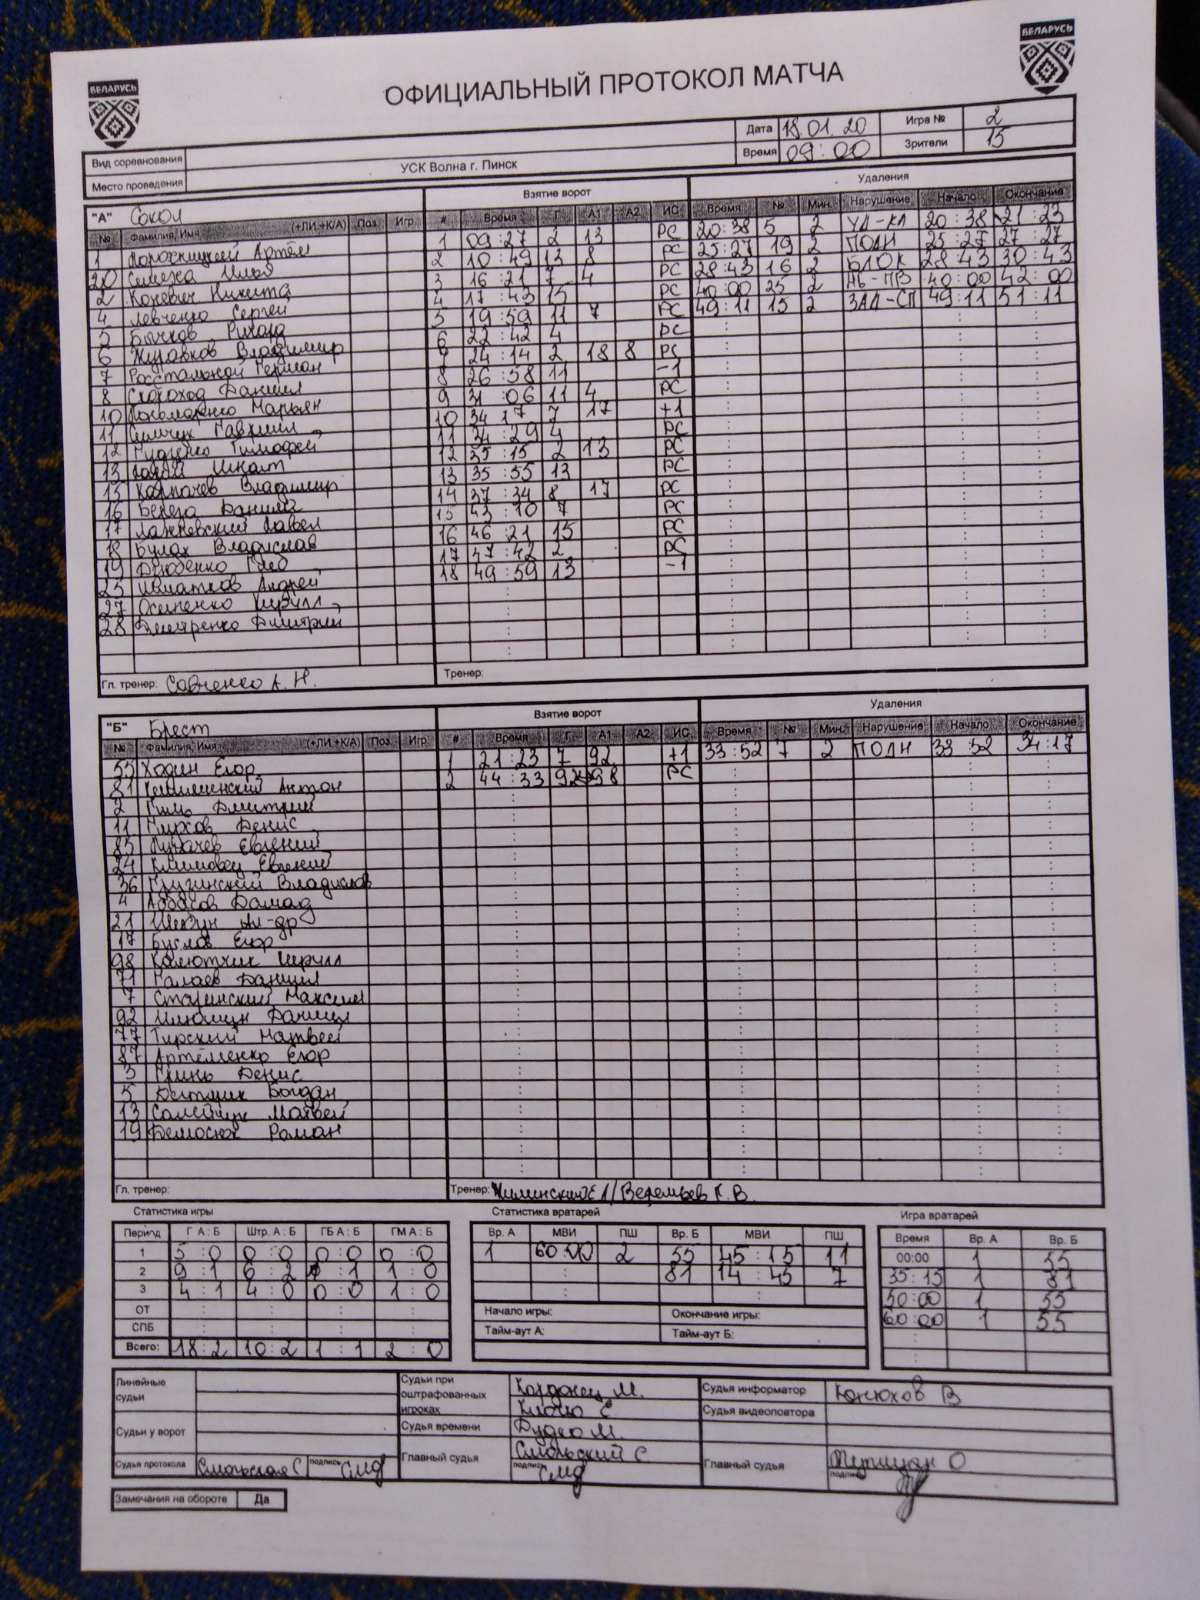 БЕЛАРУСЬ
БЕЛАРУСЬ
ОФИЦИАЛЬНЫЙ ПРОТОКОЛ МАТЧА
Вид соревнования Дата 18.01.20 Игра № 2
Место проведения УСК Волна г. Пинск Время 09:00 Зрители 15
"А" Сокол Взятие ворот Удаления
№ Фамилия, Имя (+ЛИ,+К/А) Поз Игр # Время Г А1 А2 ИС Время № Мин. Нарушение Начало Окончание
1 Артём 1 09:27 2 13 РС 20:38 5 2 УД-КЛ 20:38 21:23
20 Илья 2 10:49 13 8 РС 25:27 19 2 ПОДН 25:27 27:27
2 Коневич Никита 3 16:21 7 4 РС 28:43 16 2 БЛОК 28:43 30:43
4 Левченко Сергей 4 17:43 15 РС 40:00 25 2 40:00 42:00
5 Бычков Рихард 5 19:59 11 7 РС 49:11 15 2 ЗАД-СП 49:11 51:11
6 Журавков Владимир 6 22:42 4 РС
7 Росстальной Герман 24:14 2 18 8 РС
8 Скороход Даниил 8 26:58 11 -1
10 Пономаренко Марьян 9 31:06 11 4 РС
11 Гавриил 10 34:17 7 17 +1
12 Тимофей 11 34:29 4 РС
13 12 35:15 2 13 РС
15 Карпачев Владимир 13 35:55 13 РС
16 Береза Даниил 14 37:34 8 17 РС
17 Павел 15 43:10 7 РС
18 Булах Владислав 16 46:21 15 РС
19 Дзюбенко Глеб 17 47:42 2 РС
25 Игнатков Андрей 18 49:59 13 -1
27 Осипенко Кирилл
28 Дмитрий
Гл. тренер: Савченко А.Н. Тренер:
"Б" Брест Взятие ворот Удаления
№ Фамилия, Имя (+ЛИ,+К/А) Поз Игр. # Время Г А1 А2 ИС Время № Мин. Нарушение Начало Окончание
55 Ходин Егор 1 21:23 7 92 +1 33:52 7 2 ПОДН 33:52 34:17
81 Антон 2 44:33 92 98 РС
2 Дмитрий
11 Денис
83 Евгений
24 Климовец Евгений
36 Владислав
4 Аббасов Самад
21 Шевчун Ал-др
17 Буслов Егор
98 Кирилл
71 Малаев Даниил
7 Максим
92 Даниил
77 Тирский Матвей
87 Артёменко Егор
3 Денис
5 Богдан
13 Матвей
19 Белосюк Роман
Гл. тренер: Тренер: Жилинский Е.А/Веремьев Г.В.
Статистика игры Статистика вратарей Игра вратарей
Период Г А : Б Штр. А : Б ГБ А : Б ГМ А : Б Вр. А МВИ ПШ Вр. Б МВИ ПШ Время Вр. А Вр. Б
1 5:0 0:0 0:0 0:0 1 60:00 2 55 45:15 11 00:00 1 55
2 9:1 6:2 1:1 1:0 81 14:45 7 35:15 1 81
3 4:1 4:0 0:0 1:0 50:00 1 55
ОТ Начало игры: Окончание игры: 60:00 1 55
СПБ Тайм-аут А: Тайм-аут Б:
Всего: 18:2 10:2 1:1 2:0
Линейные судьи Судьи при оштрафованных игроках Кардонец М. Судья информатор Конюхов В
Клочко Е Судья видеоповтора
Судьи у ворот Судья времени Дудко М.
Главный судья Смольский С Главный судья О
Судья протокола Смольская С подпись подпись подпись
Замечания на обороте Да